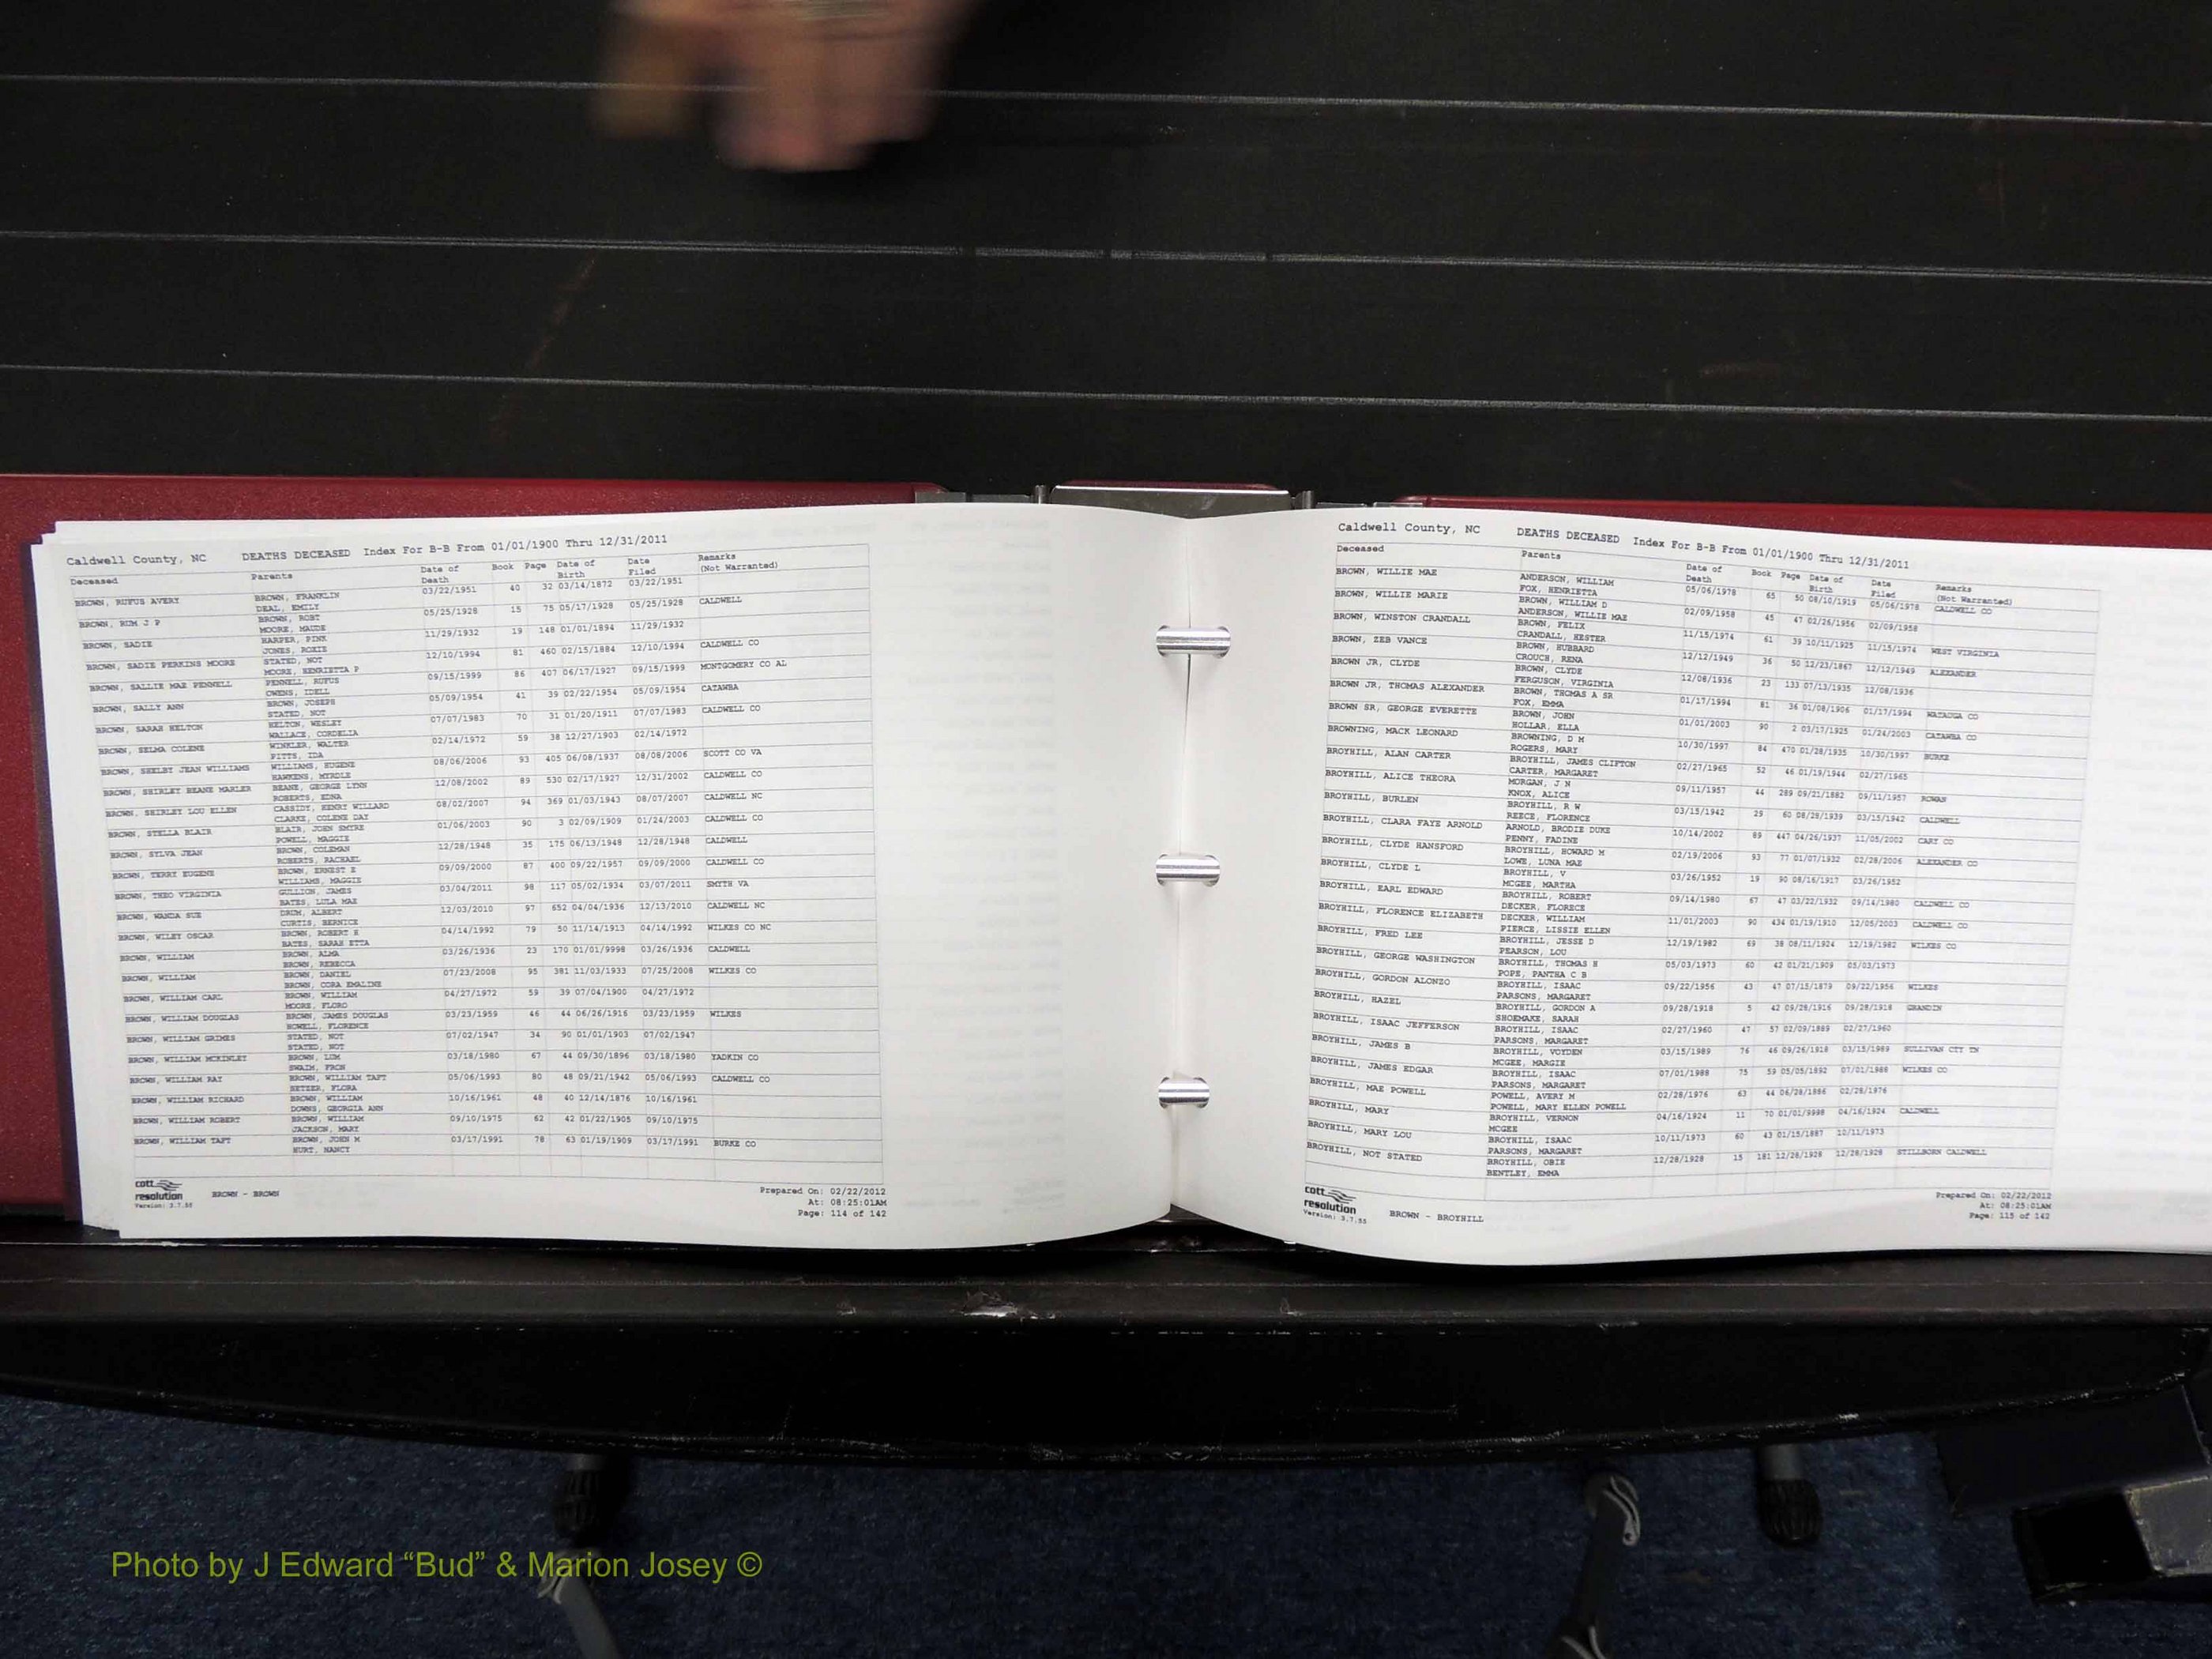 Caldwell County, NC DEATHS DECEASED Index For B-B From 01/01/1900 Thru 12/31/2011
Deceased Parents Date of Death Book Page Date of Birth Date Filed Remarks (Not Warranted)
BROWN, RUFUS AVERY BROWN, FRANKLIN 03/22/1951 40 32 03/14/1872 03/22/1951
DEAL, EMILY
BROWN, RUM J P BROWN, ROBT 05/25/1928 15 75 05/17/1928 05/25/1928 CALDWELL
MOORE, MAUDE
BROWN, SADIE HARPER, PINK 11/29/1932 19 148 01/01/1894 11/29/1932
JONES, ROXIE
BROWN, SADIE PERKINS MOORE STATED, NOT 12/10/1994 81 460 02/15/1884 12/10/1994 CALDWELL CO
MOORE, HENRIETTA P
BROWN, SALLIE MAE PENNELL PENNELL, RUFUS 09/15/1999 86 407 06/17/1927 09/15/1999 MONTGOMERY CO AL
OWENS, IDELL
BROWN, SALLY ANN BROWN, JOSEPH 05/09/1954 41 39 02/22/1954 05/09/1954 CATAWBA
STATED, NOT
BROWN, SARAH HELTON HELTON, WESLEY 07/07/1983 70 31 01/20/1911 07/07/1983 CALDWELL CO
WALLACE, CORDELIA
BROWN, SELMA COLENE WINKLER, WALTER 02/14/1972 59 38 12/27/1903 02/14/1972
PITTS, IDA
BROWN, SHELBY JEAN WILLIAMS WILLIAMS, EUGENE 08/06/2006 93 405 06/08/1937 08/08/2006 SCOTT CO VA
HAWKENS, MYRDLE
BROWN, SHIRLEY BEANE MARLER BEANE, GEORGE LYNN 12/08/2002 89 530 02/17/1927 12/31/2002 CALDWELL CO
ROBERTS, EDNA
BROWN, SHIRLEY LOU ELLEN CASSIDY, HENRY WILLARD 08/02/2007 94 369 01/03/1943 08/07/2007 CALDWELL NC
CLARKE, COLENE DAY
BROWN, STELLA BLAIR BLAIR, JOHN SMYRE 01/06/2003 90 3 02/09/1909 01/24/2003 CALDWELL CO
POWELL, MAGGIE
BROWN, SYLVA JEAN BROWN, COLEMAN 12/28/1948 35 175 06/13/1948 12/28/1948 CALDWELL
ROBERTS, RACHAEL
BROWN, TERRY EUGENE BROWN, ERNEST E 09/09/2000 87 400 09/22/1957 09/09/2000 CALDWELL CO
WILLIAMS, MAGGIE
BROWN, THEO VIRGINIA GULLION, JAMES 03/04/2011 98 117 05/02/1934 03/07/2011 SMYTH VA
BATES, LULA MAE
BROWN, WANDA SUE DRUM, ALBERT 12/03/2010 97 652 04/04/1936 12/13/2010 CALDWELL NC
CURTIS, BERNICE
BROWN, WILEY OSCAR BROWN, ROBERT H 04/14/1992 79 50 11/14/1913 04/14/1992 WILKES CO NC
BATES, SARAH ETTA
BROWN, WILLIAM BROWN, ALMA 03/26/1936 23 170 01/01/9998 03/26/1936 CALDWELL
BROWN, REBECCA
BROWN, WILLIAM BROWN, DANIEL 07/23/2008 95 381 11/03/1933 07/25/2008 WILKES CO
BROWN, CORA EMALINE
BROWN, WILLIAM CARL BROWN, WILLIAM 04/27/1972 59 39 07/04/1900 04/27/1972
MOORE, FLORO
BROWN, WILLIAM DOUGLAS BROWN, JAMES DOUGLAS 03/23/1959 46 44 06/26/1916 03/23/1959 WILKES
HOWELL, FLORENCE
BROWN, WILLIAM GRIMES STATED, NOT 07/02/1947 34 90 01/01/1903 07/02/1947
STATED, NOT
BROWN, WILLIAM MCKINLEY BROWN, LUM 03/18/1980 67 44 09/30/1896 03/18/1980 YADKIN CO
SWAIM, FRON
BROWN, WILLIAM RAY BROWN, WILLIAM TAFT 05/06/1993 80 48 09/21/1942 05/06/1993 CALDWELL CO
SETZER, FLORA
BROWN, WILLIAM RICHARD BROWN, WILLIAM 10/16/1961 48 40 12/14/1876 10/16/1961
DOWNS, GEORGIA ANN
BROWN, WILLIAM ROBERT BROWN, WILLIAM 09/10/1975 62 42 01/22/1905 09/10/1975
JACKSON, MARY
BROWN, WILLIAM TAFT BROWN, JOHN M 03/17/1991 78 63 01/19/1909 03/17/1991 BURKE CO
HURT, NANCY
cott resolution
Version: 3.7.55
BROWN - BROWN
Prepared On: 02/22/2012
At: 08:25:01AM
Page: 114 of 142
Caldwell County, NC DEATHS DECEASED Index For B-B From 01/01/1900 Thru 12/31/2011
Deceased Parents Date of Death Book Page Date of Birth Date Filed Remarks (Not Warranted)
BROWN, WILLIE MAE ANDERSON, WILLIAM 05/06/1978 65 50 08/10/1919 05/06/1978 CALDWELL CO
FOX, HENRIETTA
BROWN, WILLIE MARIE BROWN, WILLIAM D 02/09/1958 45 47 02/26/1956 02/09/1958
ANDERSON, WILLIE MAE
BROWN, WINSTON CRANDALL BROWN, FELIX 11/15/1974 61 39 10/11/1925 11/15/1974 WEST VIRGINIA
CRANDALL, HESTER
BROWN, ZEB VANCE BROWN, HUBBARD 12/12/1949 36 50 12/23/1867 12/12/1949 ALEXANDER
CROUCH, RENA
BROWN JR, CLYDE BROWN, CLYDE 12/08/1936 23 133 07/13/1935 12/08/1936
FERGUSON, VIRGINIA
BROWN JR, THOMAS ALEXANDER BROWN, THOMAS A SR 01/17/1994 81 36 01/08/1906 01/17/1994 WATAUGA CO
FOX, EMMA
BROWN SR, GEORGE EVERETTE BROWN, JOHN 01/01/2003 90 2 03/17/1925 01/24/2003 CATAWBA CO
HOLLAR, ELLA
BROWNING, MACK LEONARD BROWNING, D M 10/30/1997 84 470 01/28/1935 10/30/1997 BURKE
ROGERS, MARY
BROYHILL, ALAN CARTER BROYHILL, JAMES CLIFTON 02/27/1965 52 46 01/19/1944 02/27/1965
CARTER, MARGARET
BROYHILL, ALICE THEORA MORGAN, J N 09/11/1957 44 289 09/21/1882 09/11/1957 ROWAN
KNOX, ALICE
BROYHILL, BURLEN BROYHILL, R W 03/15/1942 29 60 08/29/1939 03/15/1942 CALDWELL
REECE, FLORENCE
BROYHILL, CLARA FAYE ARNOLD ARNOLD, BRODIE DUKE 10/14/2002 89 447 04/26/1937 11/05/2002 CARY CO
PENNY, FADINE
BROYHILL, CLYDE HANSFORD BROYHILL, HOWARD M 02/19/2006 93 77 01/07/1932 02/28/2006 ALEXANDER CO
LOWE, LUNA MAE
BROYHILL, CLYDE L BROYHILL, V 03/26/1952 19 90 08/16/1917 03/26/1952
MCGEE, MARTHA
BROYHILL, EARL EDWARD BROYHILL, ROBERT 09/14/1980 67 47 03/22/1932 09/14/1980 CALDWELL CO
DECKER, FLORECE
BROYHILL, FLORENCE ELIZABETH DECKER, WILLIAM 11/01/2003 90 434 01/19/1910 12/05/2003 CALDWELL CO
PIERCE, LISSIE ELLEN
BROYHILL, FRED LEE BROYHILL, JESSE D 12/19/1982 69 38 08/11/1924 12/19/1982 WILKES CO
PEARSON, LOU
BROYHILL, GEORGE WASHINGTON BROYHILL, THOMAS H 05/03/1973 60 42 01/21/1909 05/03/1973
POPE, PANTHA C B
BROYHILL, GORDON ALONZO BROYHILL, ISAAC 09/22/1956 43 47 07/15/1879 09/22/1956 WILKES
PARSONS, MARGARET
BROYHILL, HAZEL BROYHILL, GORDON A 09/28/1918 5 42 09/28/1916 09/28/1918 GRANDIN
SHOEMAKE, SARAH
BROYHILL, ISAAC JEFFERSON BROYHILL, ISAAC 02/27/1960 47 57 02/09/1889 02/27/1960
PARSONS, MARGARET
BROYHILL, JAMES B BROYHILL, VOYDEN 03/15/1989 76 46 09/26/1918 03/15/1989 SULLIVAN CTY TN
MCGEE, MARGIE
BROYHILL, JAMES EDGAR BROYHILL, ISAAC 07/01/1988 75 59 05/05/1892 07/01/1988 WILKES CO
PARSONS, MARGARET
BROYHILL, MAE POWELL POWELL, AVERY M 02/28/1976 63 44 06/28/1886 02/28/1976
POWELL, MARY ELLEN POWELL
BROYHILL, MARY BROYHILL, VERNON 04/16/1924 11 70 01/01/9998 04/16/1924 CALDWELL
MCGEE
BROYHILL, MARY LOU BROYHILL, ISAAC 10/11/1973 60 43 01/15/1887 10/11/1973
PARSONS, MARGARET
BROYHILL, NOT STATED BROYHILL, OBIE 12/28/1928 15 181 12/28/1928 12/28/1928 STILLBORN CALDWELL
BENTLEY, EMMA
cott resolution
Version: 3.7.55
BROWN - BROYHILL
Prepared On: 02/22/2012
At: 08:25:01AM
Page: 115 of 142
Photo by J Edward “Bud” & Marion Josey ©